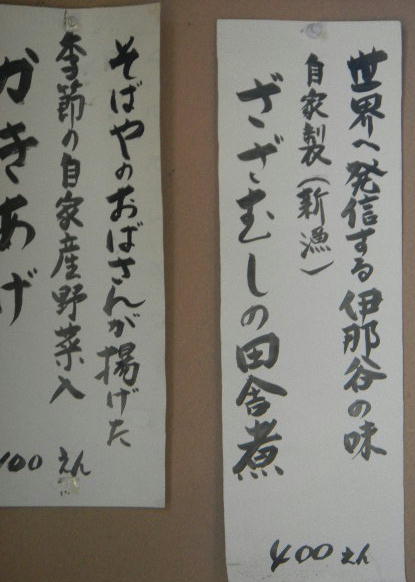 世界へ発信する伊那谷の味
自家製(新漁)
ざざむしの田舎煮
400えん
そばやのおばさんが揚げた
季節の自家産野菜入
かきあげ
400えん